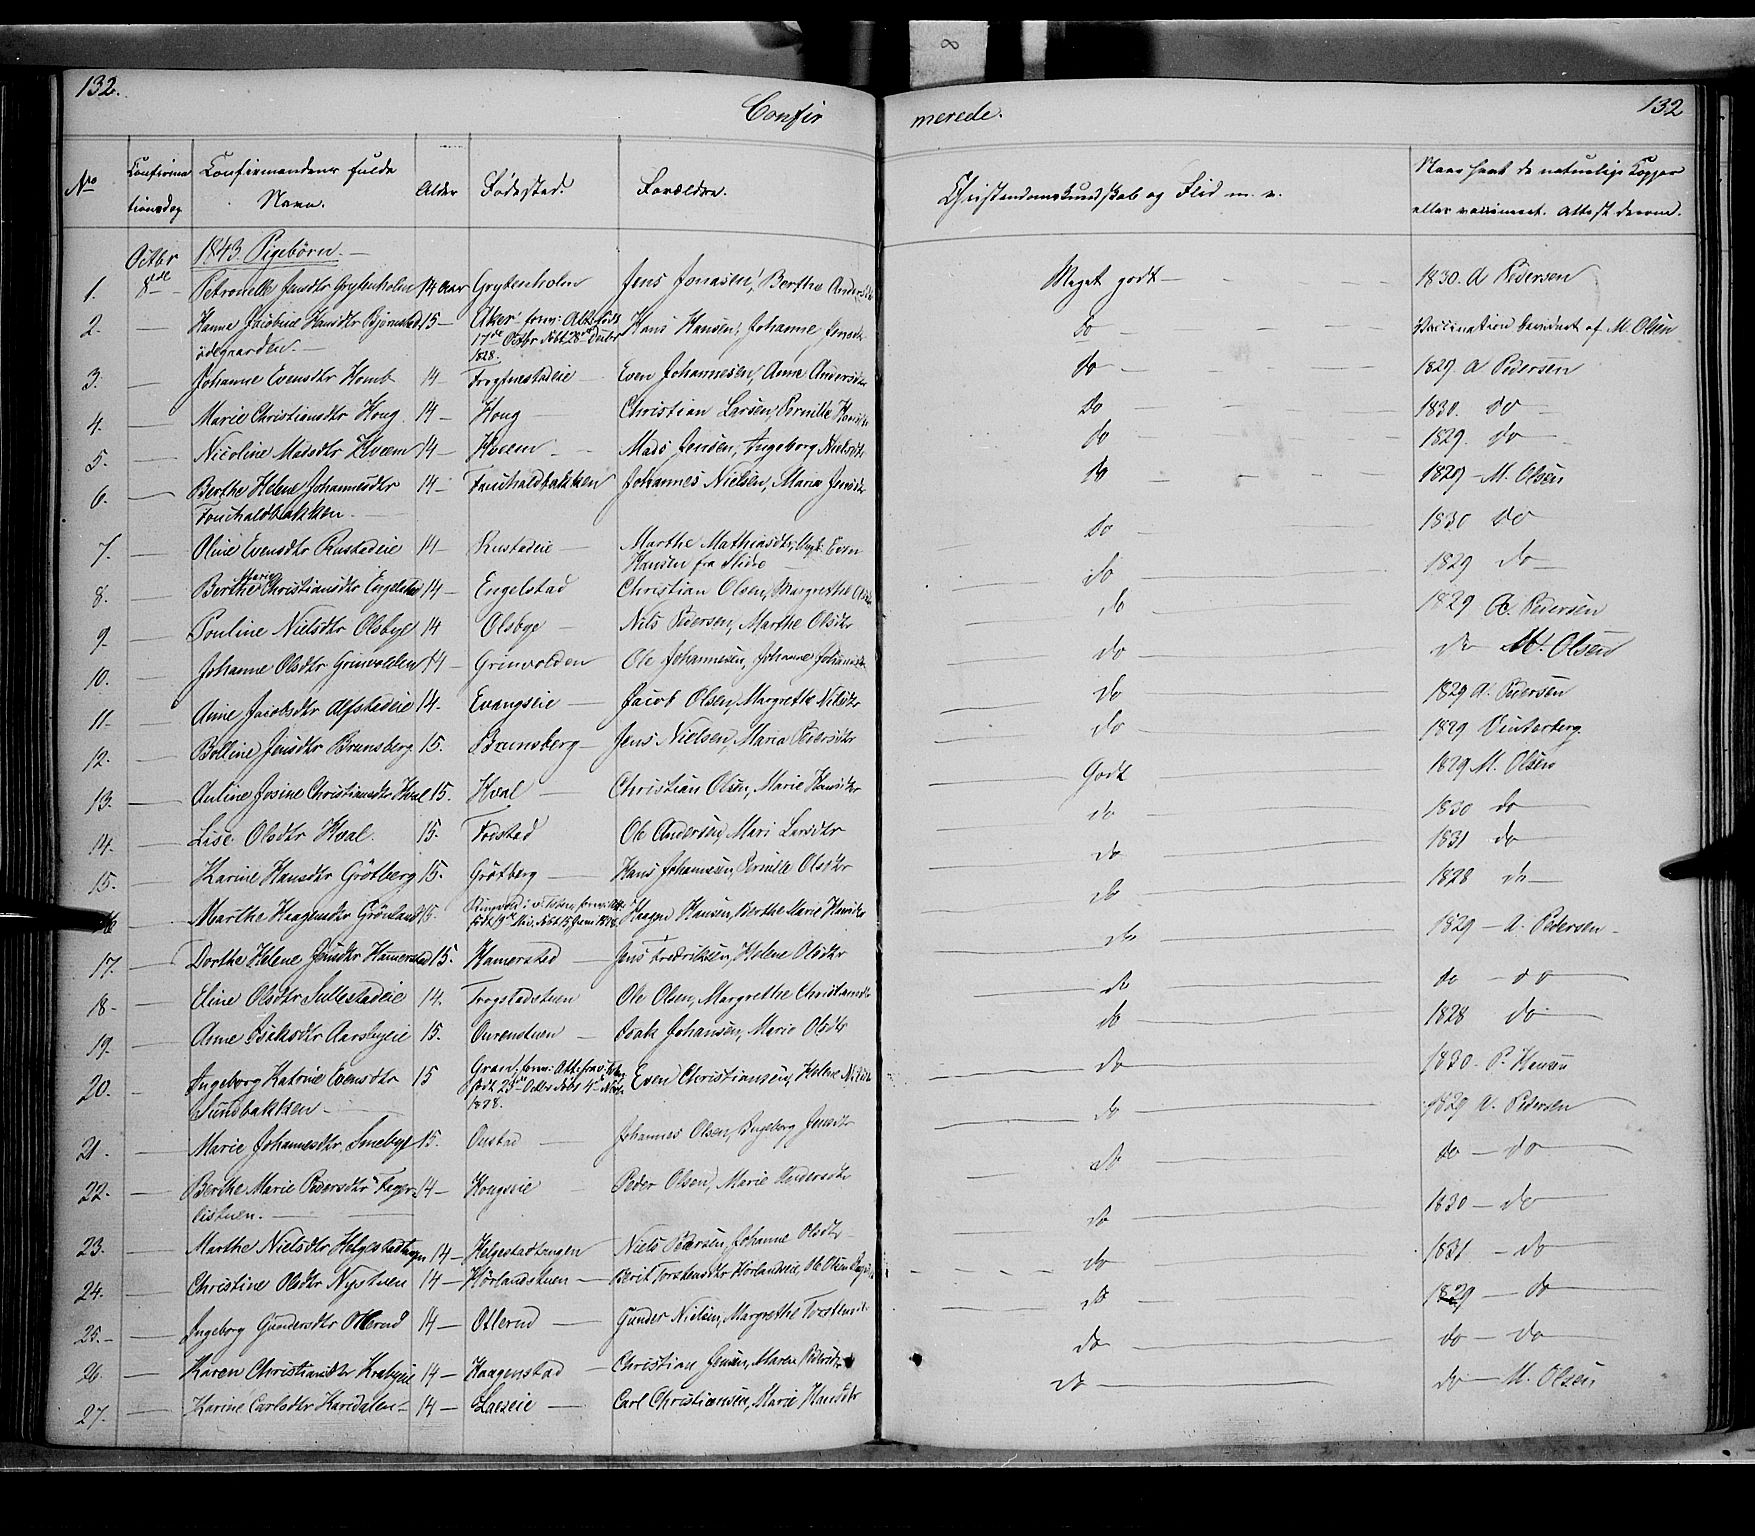 8
132.
132
Confir merede.
No Confirmationsdag Confirmandens fulde Navn. Alder Fødested. Forældre. Christendomskundskab og Flid m. v. Naar havt de naturlige Kopper eller vaccineret. Attest derom.
Octbr 1843. Pigebörn.
1. 8de Petronelle Jensdtr Grytenholm 14 Aar Grytenholm Jens Jonasen, Berthe Andersdtr Meget godt 1830. A Pedersen
2. Hanne Jacobine Hansdtr Bjørnstad 15 Aker Hans Hansen, Johanne Jensdtr do Vaccination bevidnet af M. Olsen
ödegaarden. 17de Octbr döbt 28de Decbr
1828.
3. Johanne Evensdtr Homb 14 Trogstadeie Even Johannesen, Anne Andersdtr do 1829 A Pedersen
4. Marie Christiansdtr Houg 14 Houg Christian Larsen, Pernille do 1830. do
5. Nicoline Madsdtr Kveem 14 Kveem Mads Jensen, Ingeborg Nielsdtr do 1829 do
6. Berthe Helene Johannesdtr 14 Fouchaldbakken Johannes Nielsen, Maria Jensdtr do 1829 M. Olsen
Fouchaldbakken.
7. Oline Evensdtr Rustadeie 14 Rustadeie Marthe Mathiasdtr, Even do 1830 do
Hansen fra Slidre
8. Berthe Marie Christiansdtr Engelstad 14 Engelstad Christian Olsen, Margrethe do 1829 do
9. Pouline Nielsdtr Olsbye 14 Olsbye Nils Pedersen, Marthe Olsdtr do 1829 A. Pedersen
10. Johanne Olsdtr Grinvolden 14 Grinvolden Ole Johannesen, Johanne Johannesdtr do do M. Olsen
11. Anne Jacobsdtr Alfstadeie 14. Evangseie Jacob Olsen, Margrethe Nilsdtr do 1829 A. Pedersen
12. Bolline Jensdtr Brunsberg 15. Brunsberg Jens Nielsen, Maria Pedersdtr do 1829 Vinterberg
13. Auline Josine Christiansdtr Hval 15. Hval Christian Olsen, Marie Hansdtr Godt 1829 M. Olsen
14. Lise Olsdtr Hval. 15. Fodstad Ole Andersen, Mari Larsdtr do 1830 do
15. Karine Hansdtr Grötberg 15. Grötberg Hans Johannesen, Pernille Olsdtr do 1831 do
16 Marthe Haagensdtr Grönland 15. Haagen Hansen, Berthe Marie Hansdtr do 1828 do
17. Dorthe Helene Jensdtr Hammerstad 15. Hamerstad Jens Fredriksen, Helene Olsdtr do 1829 A. Pedersen
18. Eline Olsdtr Sullestadeie 14. Trogstadstuen Ole Olsen, Margrethe Christiansdtr do do do
19. Anne Isaksdtr Aarsbyeie 15. Ourenstuen Isak Johansen, Marie Olsdtr do 1828 do
20. Ingeborg Katrine Evensdtr 15 Gran, Even Christiansen, Helene do 1830. P. Hansen
Sundbakken födt 25de Octbr döbt 4de
1828.
21. Marie Johannesdtr Smebye 15. Onstad Johannes Olsen, Ingeborg Jensdtr do 1829 A. Pedersen
22. Berthe Marie Pedersdtr Fager- 14 Hougseie Peder Olsen, Marie Andersdtr do do do
listuen.
23. Marthe Nielsdtr Helgestadhagen 14 Helgestadhagen Niels Pedersen, Johanne Olsdtr do 1830 do
24. Christine Olsdtr Nystuen 14 Hörlandstuen Berit Torstensdtr Hörlandseie, Ole Olsen do 1831 do
25. Ingeborg Gundersdtr Otterud 14 Otterud Gunder Nielsen, Margrethe do 1829 do
26. Karen Christiansdtr Krabyeie 14 Haagenstad Christian Jensen, Maren do do do
27. Karine Carlsdtr Karidalen 14 Carl Christiansen, Marie Hansdtr do do M. Olsen